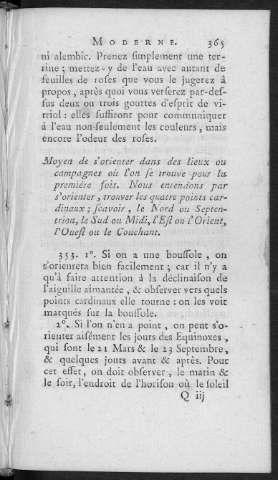 MODERNE. 365
ni alembic. Prenez simplement une ter-
rine ; mettez-y de l'eau avec autant de
feuilles de roses que vous le jugerez à
propos, après quoi vous verserez par-des-
sus deux ou trois gouttes d'esprit de vi-
triol : elles suffiront pour communiquer
à l'eau non-seulement les couleurs, mais
encore l'odeur des roses.
Moyen de s'orienter dans des lieux ou
campagnes où l'on se trouve pour la
premiére fois. Nous entendons par
s'orienter, trouver les quatre points car-
dinaux ; sçavoir, le Nord ou Septen-
trion, le Sud ou Midi, l'Est ou l'Orient,
l'Ouest ou le Couchant.
353. 1°. Si on a une boussole, on
s'orientera bien facilement ; car il n'y a
qu'à faire attention à la déclinaison de
l'aiguille aimantée, & observer vers quels
points cardinaux elle tourne : on les voit
marqués sur la boussole.
2°. Si l'on n'en a point, on peut s'o-
rienter aisément les jours des Equinoxes,
qui sont le 21 Mars & le 23 Septembre,
& quelques jours avant & après. Pour
cet effet, on doit observer, le matin &
le soir, l'endroit de l'horison où le soleil
Q iij